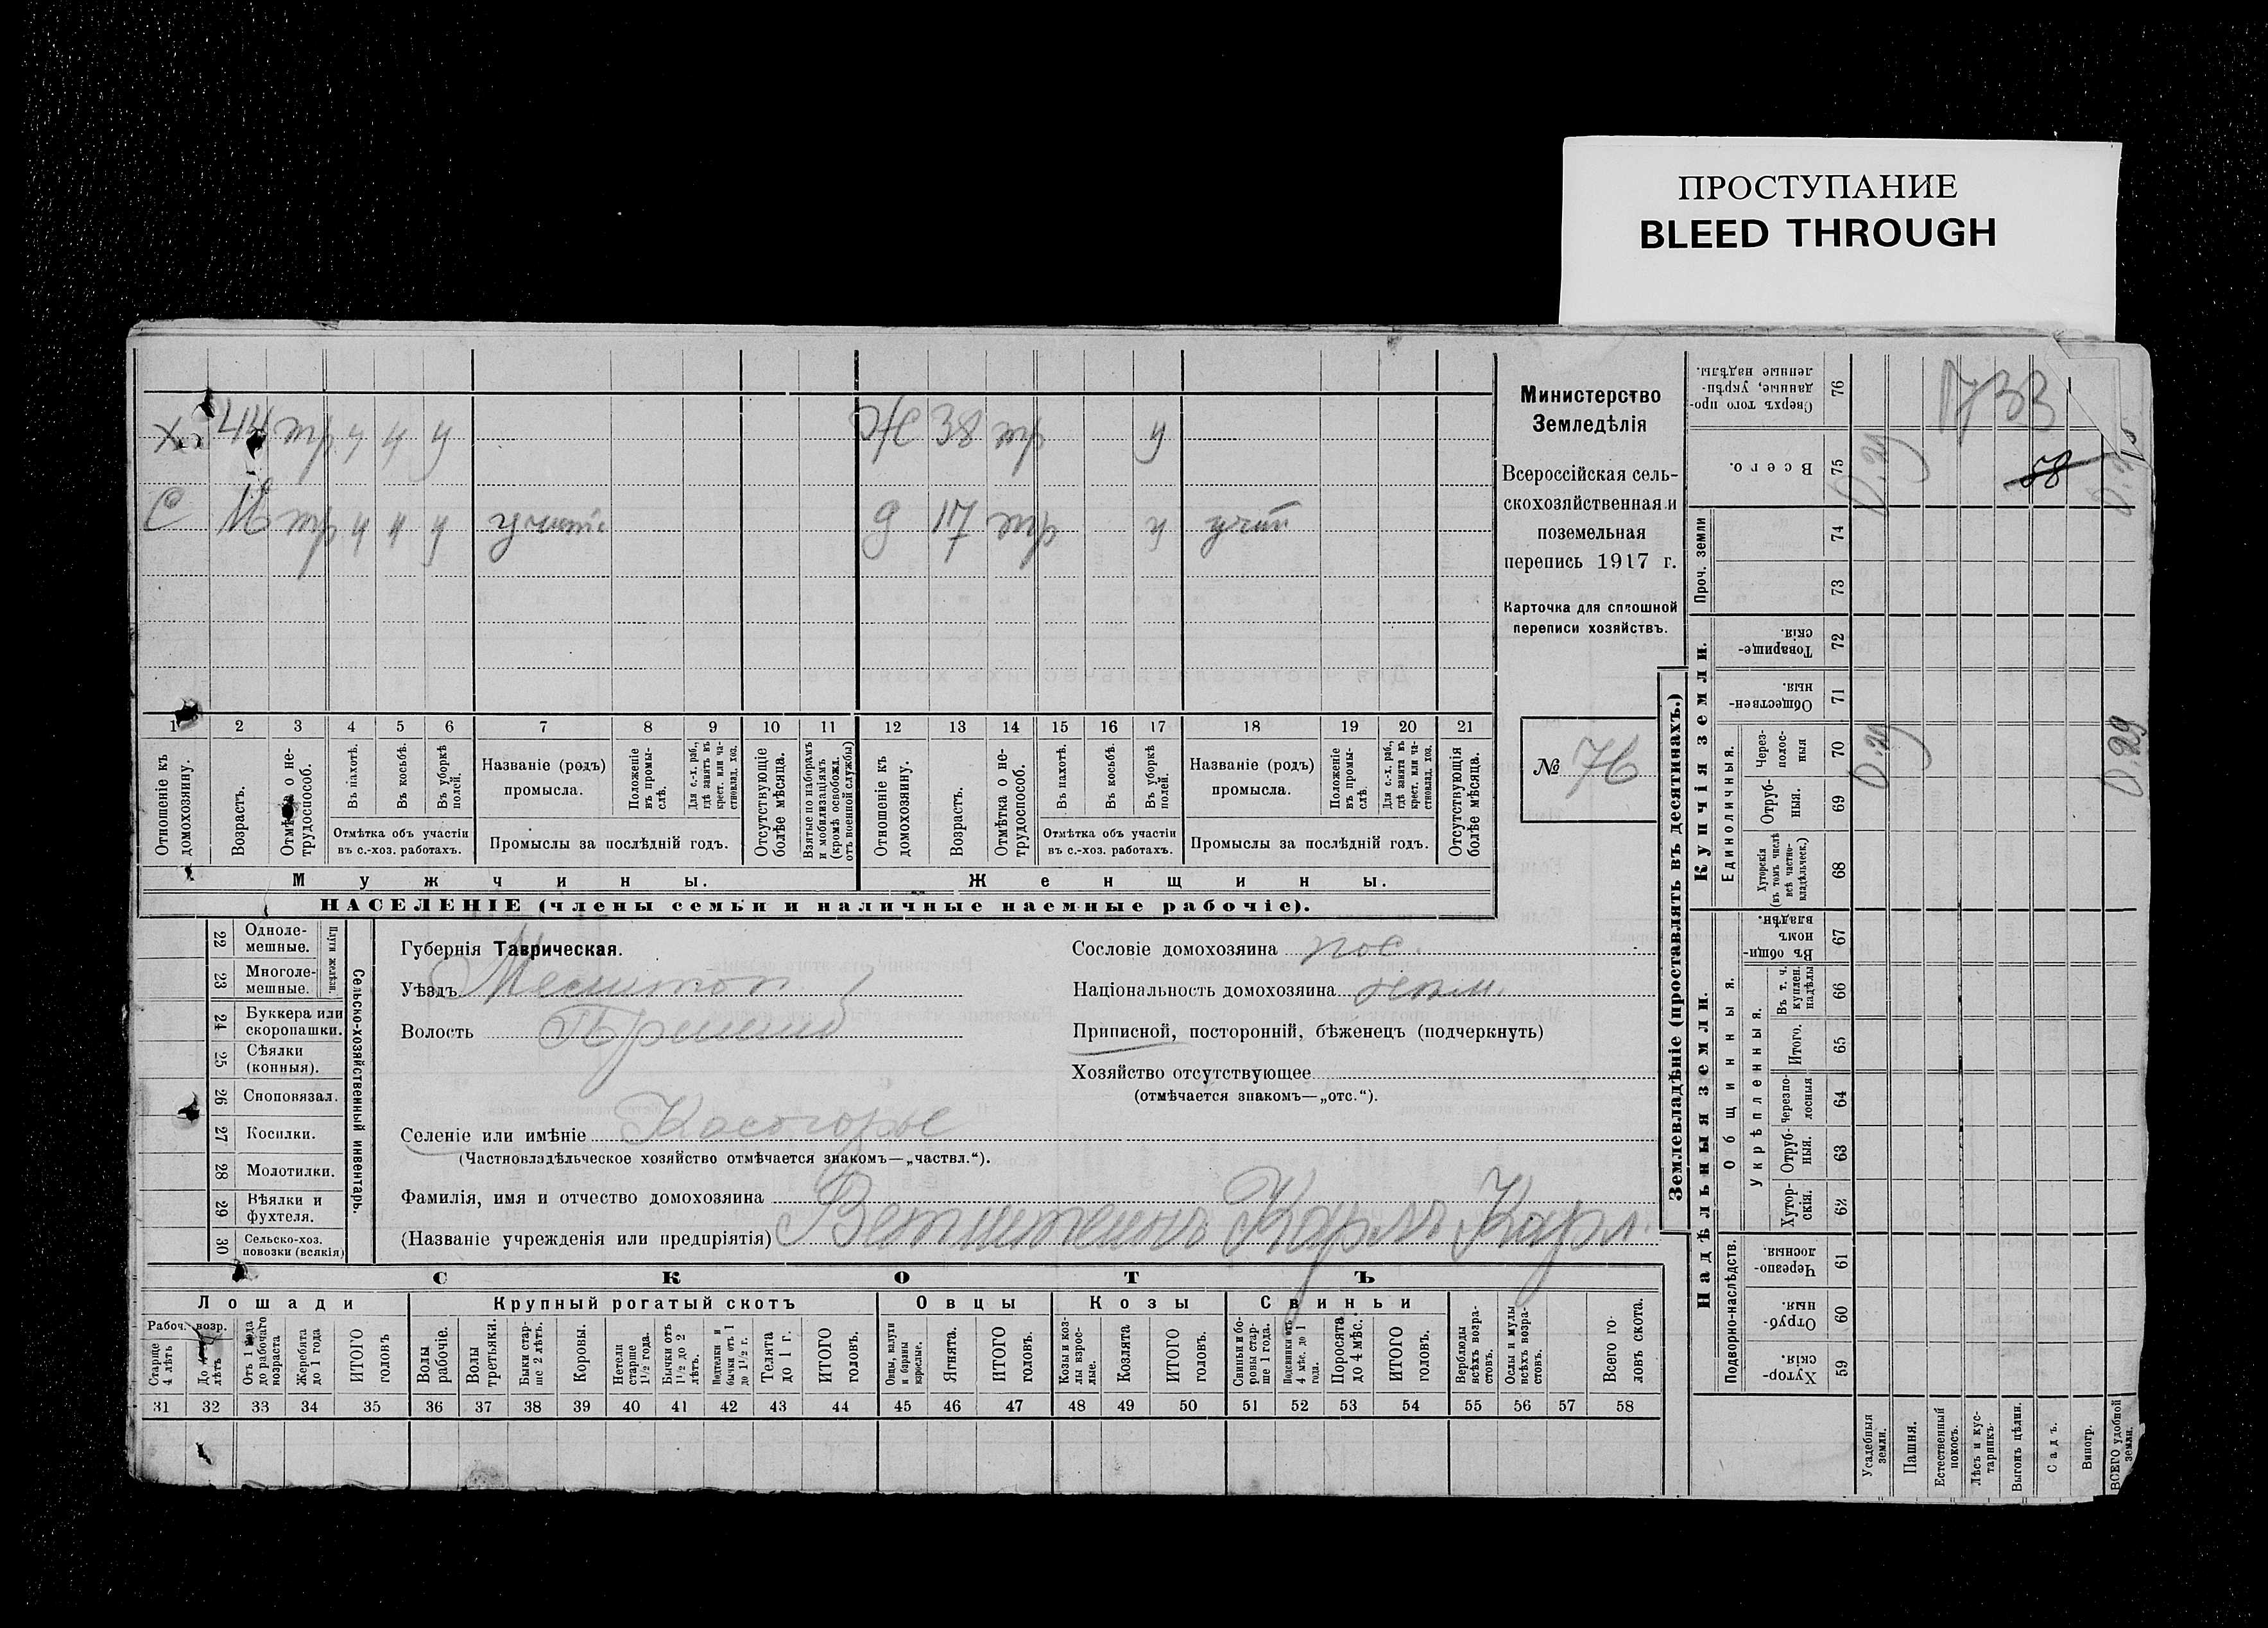 ПРОСТУПАНИЕ
BLEED THROUGH
Х 44 тр ч ч у Ж 38 тр у
С 16 тр ч ч у Д 17 тр у
1 2 3 4 5 6 7 8 9 10 11 12 13 14 15 16 17 18 19 20 21
Отношеніе къ домохозяину.
Возрастъ.
Отмѣтка о не-трудоспособ.
Въ пахотѣ.
Въ косьбѣ.
Въ уборкѣ полей.
Отмѣтка объ участіи
въ с.-хоз. работахъ.
Названіе (родъ)
промысла.
Положеніе въ промы-слѣ.
Для с.-х. раб., гдѣ занятъ въ крест. или ча-стновлад. хоз.
Промыслы за послѣдній годъ.
Отсутствующіе болѣе мѣсяца.
Взятые по наборамъ и мобилизаціямъ (кромѣ освобожд. отъ военной службы)
Отношеніе къ домохозяину.
Возрастъ.
Отмѣтка о не-трудоспособ.
Въ пахотѣ.
Въ косьбѣ.
Въ уборкѣ полей.
Отмѣтка объ участіи
въ с.-хоз. работахъ.
Названіе (родъ)
промысла.
Положеніе въ промы-слѣ.
Для с.-х. раб., гдѣ занята въ крест. или ча-стновлад. хоз.
Промыслы за послѣдній годъ.
Отсутствующія болѣе мѣсяца.
Мужчины. Женщины.
НАСЕЛЕНІЕ (члены семьи и наличные наемные рабочіе).
Министерство
Земледѣлія
Всероссійская сель-
скохозяйственная и
поземельная
перепись 1917 г.
Карточка для сплошной
переписи хозяйствъ.
№ 76
22 Одноле-мешные.
23 Многоле-мешные.
Плуги желѣзн.
24 Буккера или скоропашки.
25 Сѣялки (конныя).
26 Сноповязал.
27 Косилки.
28 Молотилки.
29 Вѣялки и фухтеля.
30 Сельско-хоз. повозки (всякія)
Сельско-хозяйственный инвентарь.
Губернія Таврическая.
Уѣздъ Мелитоп
Волость
Селеніе или имѣніе Костогорье
(Частновладѣльческое хозяйство отмѣчается знакомъ—„частвл.“).
Фамилія, имя и отчество домохозяина
(Названіе учрежденія или предпріятія) Ветштейнъ Карлъ Карл.
Сословіе домохозяина пос.
Національность домохозяина нѣм.
Приписной, посторонній, бѣженецъ (подчеркнуть)
Хозяйство отсутствующее
(отмѣчается знакомъ—„отс.“).
СКОТЪ
Лошади Крупный рогатый скотъ Овцы Козы Свиньи
Рабоч. возр.
Старше 4 лѣтъ
До 4 лѣтъ
Отъ 1 года до рабочаго возраста
Жеребята до 1 года
ИТОГО головъ
Волы рабочіе.
Волы третьяки.
Быки стар-ше 2 лѣтъ.
Коровы.
Нетели старше 1½ года.
Бычки отъ 1½ до 2 лѣтъ.
Подтелки и бычки отъ 1 до 1½ г.
Телята до 1 г.
ИТОГО головъ.
Овцы, валухи и бараны взрослые.
Ягнята.
ИТОГО головъ.
Козы и коз-лы взрос-лые.
Козлята
ИТОГО головъ.
Свиньи и бо-ровы стар-ше 1 года.
Подсвинки отъ 4 мѣс. до 1 года.
Поросята до 4 мѣс.
ИТОГО головъ.
Верблюды всѣхъ возра-стовъ.
Ослы и мулы всѣхъ возра-стовъ.
Всего го-ловъ скота.
31 32 33 34 35 36 37 38 39 40 41 42 43 44 45 46 47 48 49 50 51 52 53 54 55 56 57 58
Землевладѣніе (проставлять въ десятинахъ.)
Надѣльныя земли. Купчія земли. Проч. земли
Подворно-наслѣдств.
Общинныя.
Укрѣпленныя.
Единоличныя.
Сверхъ того про-данные, укрѣп-ленные надѣлы. 76
Всего. 75
74
73
Товарище-скія. 72
Обществен-ныя. 71
Через-полос-ныя 70
Отруб-ныя. 69
Хуторскія (въ томъ числѣ всѣ частно-владѣльческ.) 68
Въ общи-номъ владѣн. 67
Въ т. ч. куплен. надѣлы 66
Итого. 65
Черезпо-лосныя 64
Отруб-ныя. 63
Хутор-скія. 62
Черезпо-лосныя. 61
Отруб-ныя. 60
Хутор-скія. 59
Усадебныя земли.
Пашня.
Естественный покосъ.
Лѣсъ и кус-тарникъ.
Выгонъ цѣлин.
Садъ.
Виногр.
ВСЕГО удобной земли.
0.29
0.29
0.29
1733
58